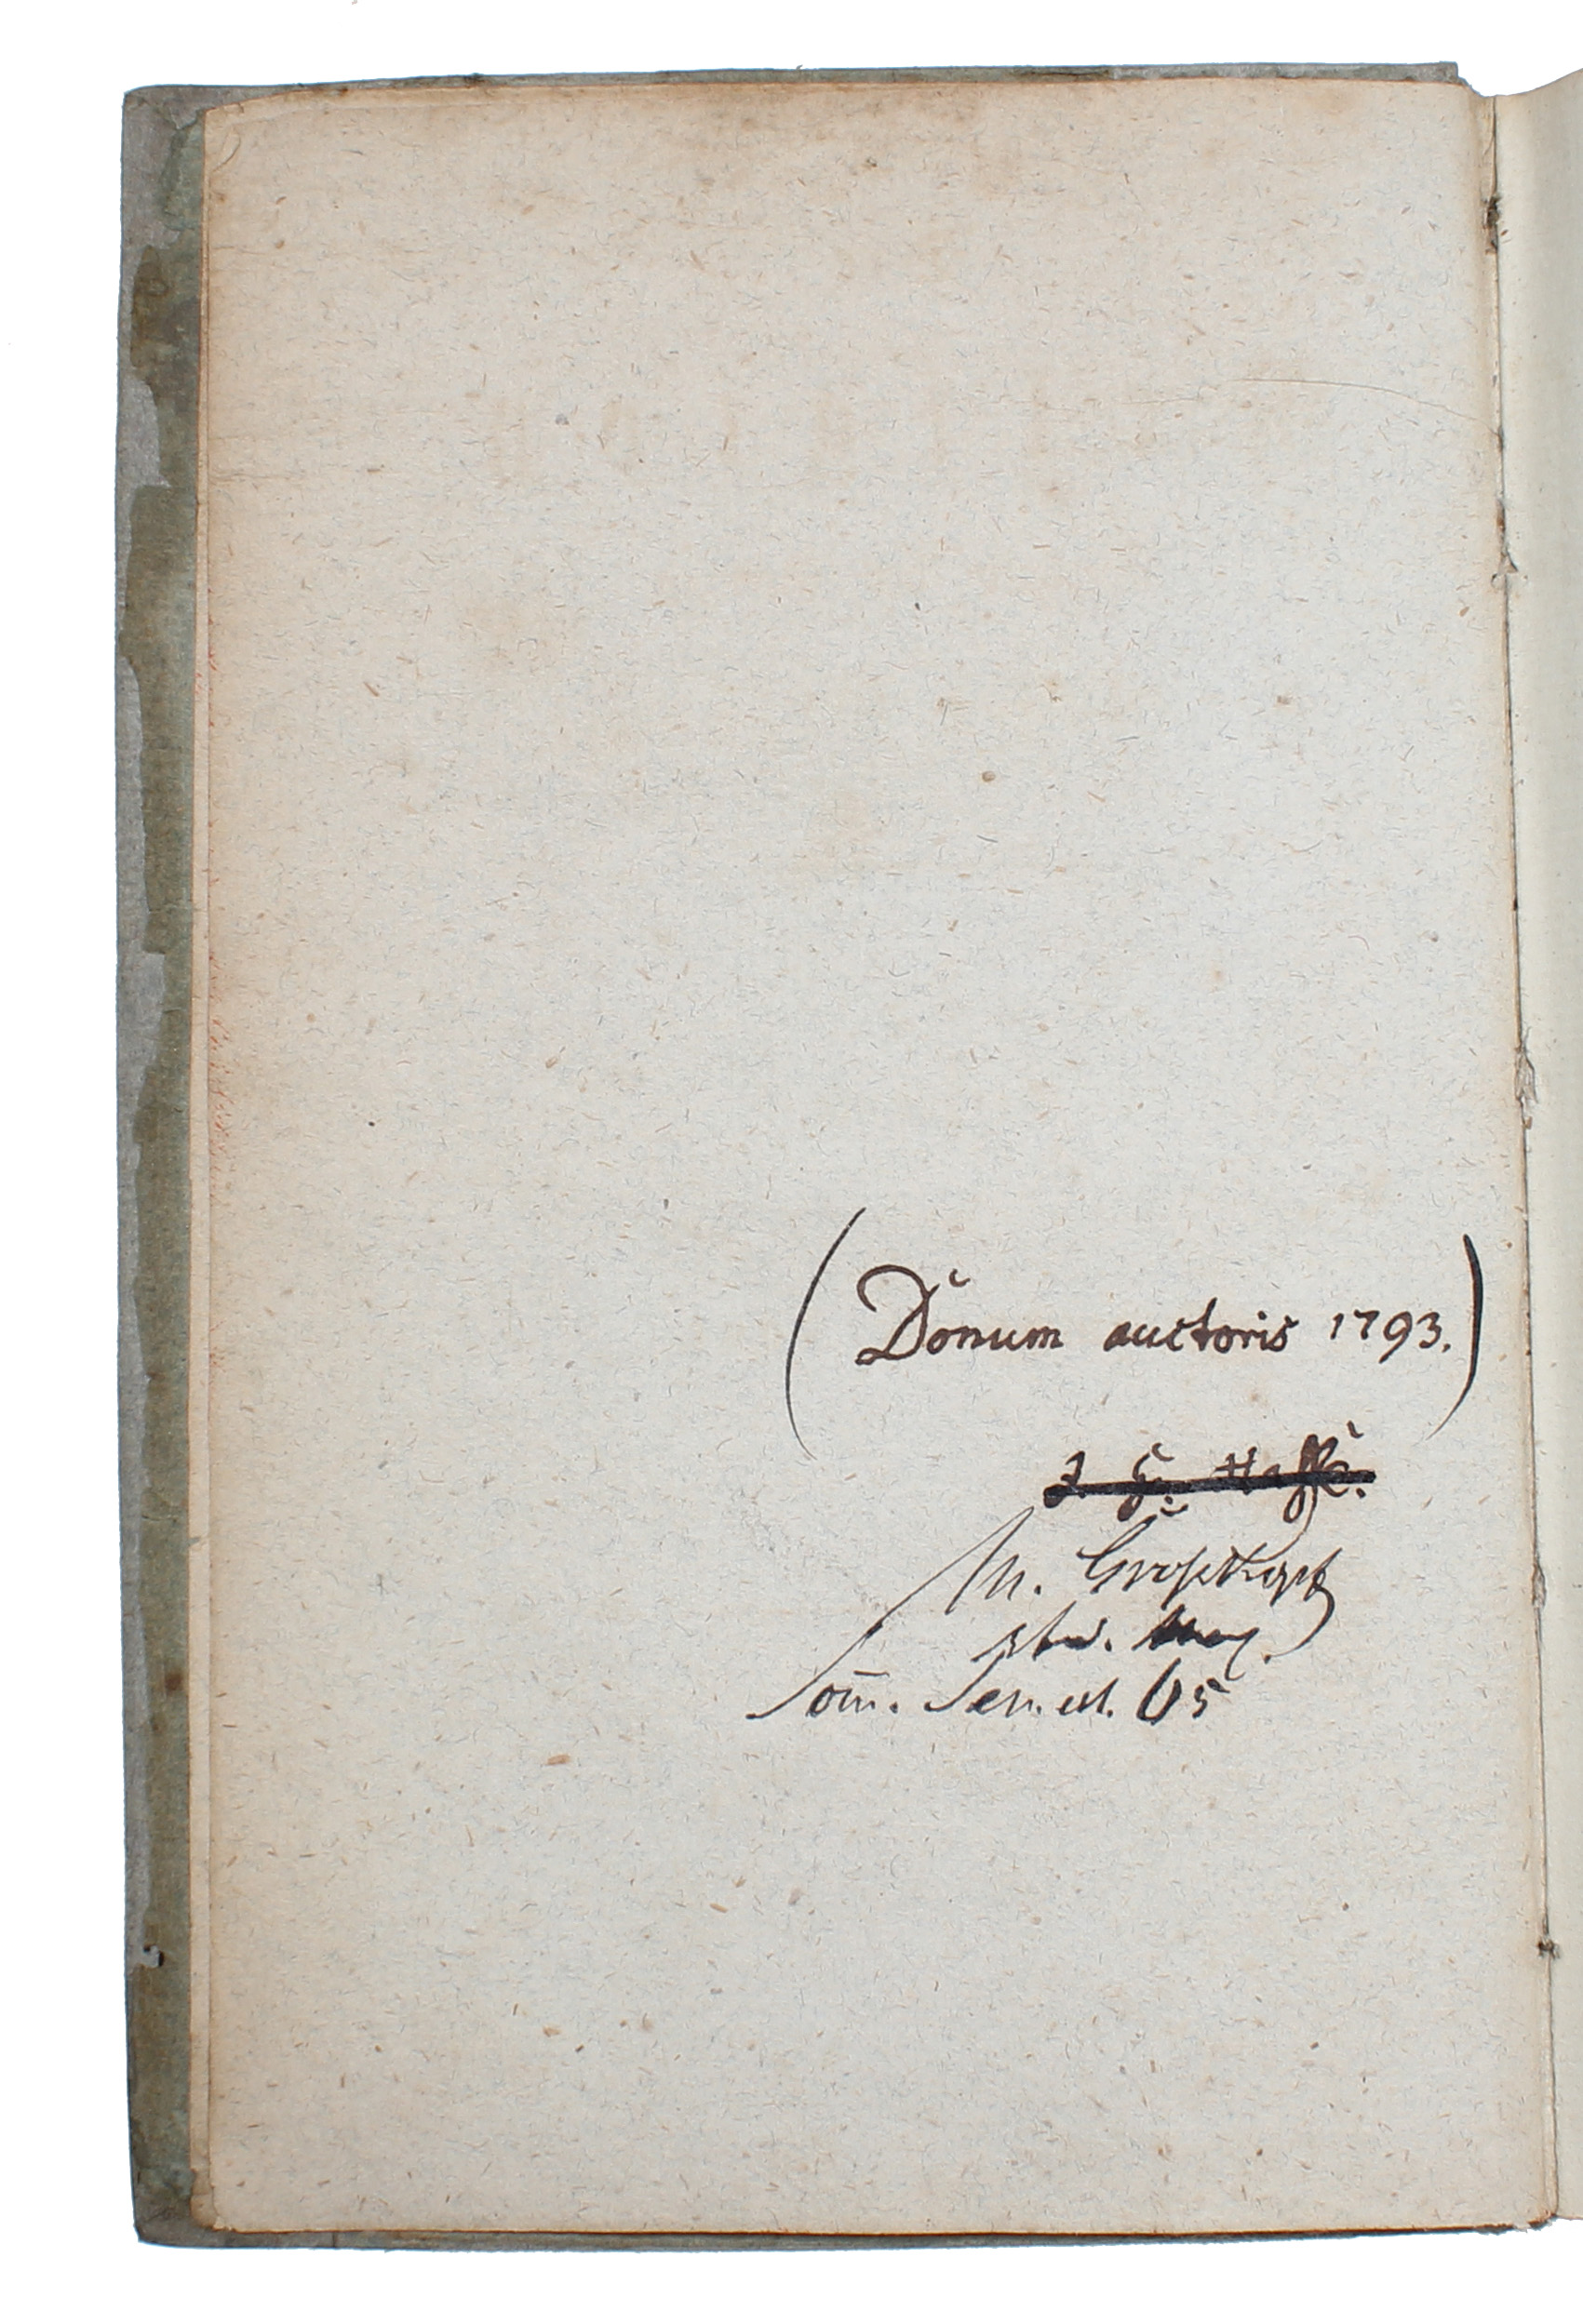 (Donum auctoris 1793.)
J. G. Hasse.
M. Großkopf
stud.
Som. Semest. 65